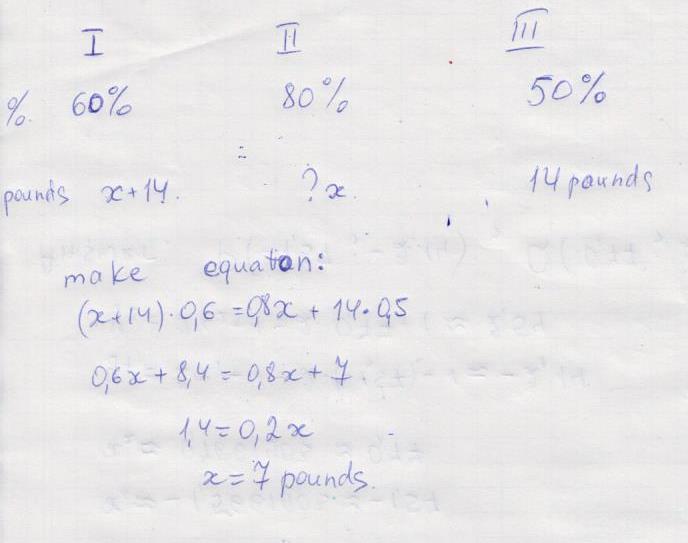 I II III
%. 60% 80% 50%
=
pounds x+14. ?x. 14 pounds
make equation:
(x+14)·0,6 = 0,8x + 14·0,5
0,6x + 8,4 = 0,8x + 7
1,4 = 0,2x
x = 7 pounds.